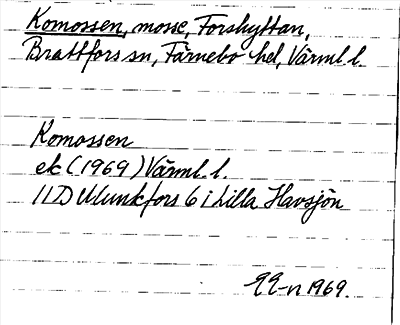 Komossen, mosse, Forshyttan,
Brattfors sn, Färnebo hd, Värml. l.
Komossen
ek (1969) Värml. l.
11D Munkfors 6 i Lilla Havsjön
EE-n 1969.